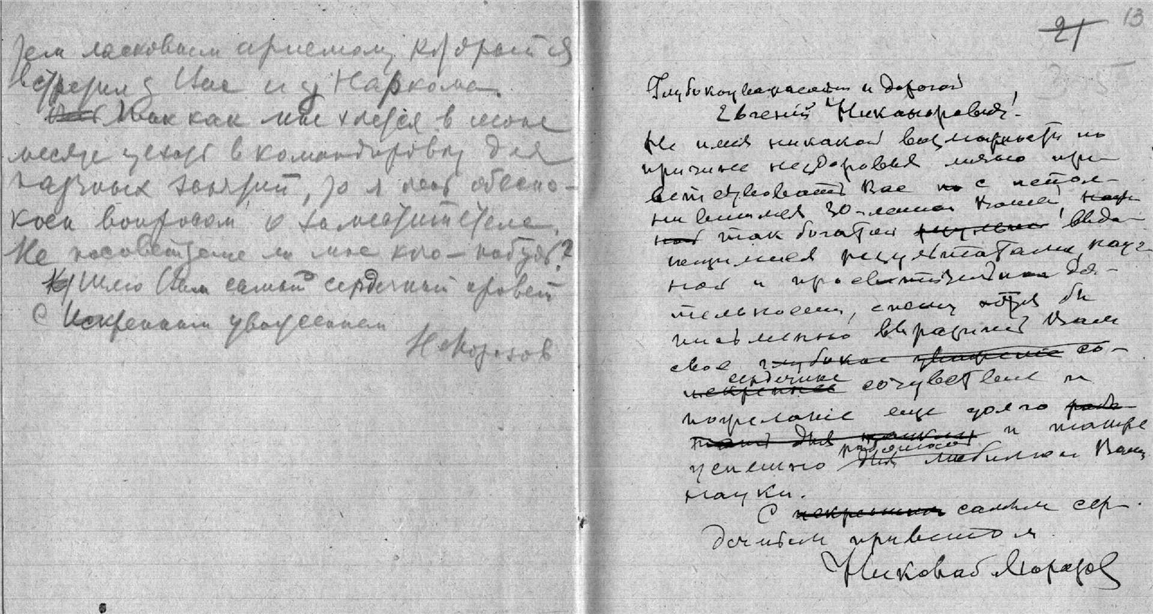 тем ласковым приемом, который я
встретил у Вас и у Наркома.
Так как мне хочется в июне
месяце уехать в командировку для
научных занятий, то я обеспо-
коен вопросом о заместителе.
Не посоветуете ли мне кого-нибудь?
Шлю Вам самый сердечный привет
С искренним уважением
Н Морозов
21 13
Глубокоуважаемый и дорогой
Евгений Никанорович!
Не имея никакой возможности по
причине нездоровья лично при-
ветствовать Вас с испол-
нившимся 30-летием Вашей
так богатой выда-
ющимися результатами науч-
ной и просветительной дея-
тельности, спешу хотя бы
письменно выразить Вам
свое глубокое уважение
искреннее сердечное сочувствие и
пожелание еще долго
и также
успешно работать для любимой Вами
науки.
С искренним самым сер-
дечным приветом
Николай Морозов